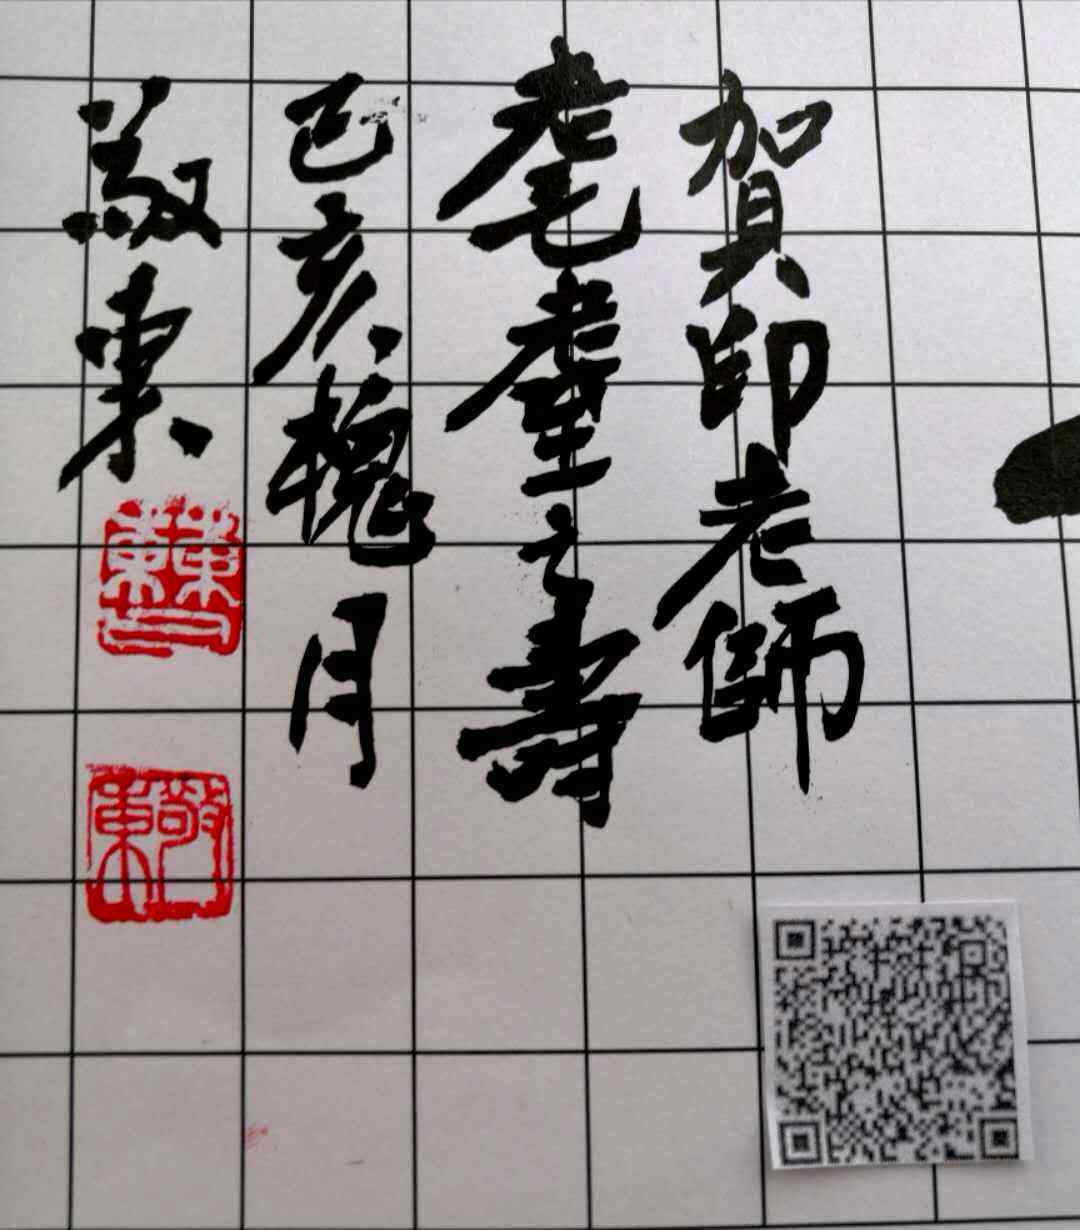 賀印老師
耄耋之壽
己亥槐月
敬東
敬東